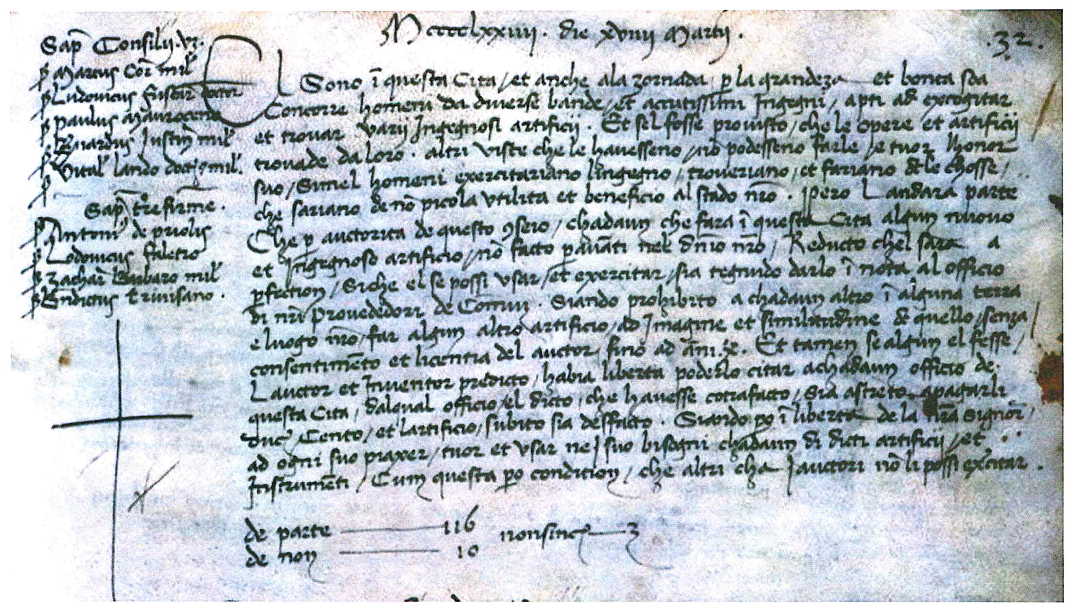 Mcccclxxiiii. die xviiii Martii.
.32.
Sap Consilii .vi.
p Marcus Cor mil
p Ludovicus fuscar
p paulus Mauroceno
p Bnardus Justin mil
p Vital lando doc, mil.
Sap tre firme.
p Antoni de priolis
p Lodovicus faletro
p Zachari Barbaro mil
p Bndictus trivisano.
El Sono ī questa Cita, et anche ala zornada p la grandeza et bonta soa
Concorre homeni da diverse bande, et accutissimi Ingegni, apti ad excogitar
et trovar varii Ingegnosi artificii. Et sel fosse provisto, che le opere et artificii
trovade da loro, altri viste che le havesseno, nō podesseno farle, e tuor l honor
suo, Simel homeni exercitariano lingegno, troveriano, et fariano de le chosse,
che sariano de nō picola utilita et beneficio al stado nr̄o. Pero L andara parte
Che p auctorita de questo ꝯseio, chadaun che fara ī questa Cita algun nuovo
et Ingegnoso artificio, nō facto p avāti nel dn̄io nr̄o, Reducto chel sara a
pfection, Siche el se possi usar, et exercitar, sia tegnudo darlo ī nota al officio
di nr̄i provededori de Comun. Siando prohibito a chadaun altro ī alguna terra
e luogo nr̄o, far algun altro artificio, ad Imagine et similitudine de quello, senza
consentimēto et licentia del auctor, fino ad āni .x. Et tamen se algun el fesse,
L auctor et Inventor predicto, habia liberta poderlo citar a chadaun officio de
questa Cita, dal qual officio, el dicto, che havesse cōtrafacto, Sia astreto a pagarli
duc Cento, et l artificio, subito sia desfacto. Siando po ī liberta de la nr̄a Signor
ad ogni suo piaxer, tuor et usar ne I suo bisogni chadaun di dicti artificii, et
Instrumēti, Cum questa po condition, che altri cha I auctori nō li possi exercitar.
de parte 116
de non 10 non sinc 3